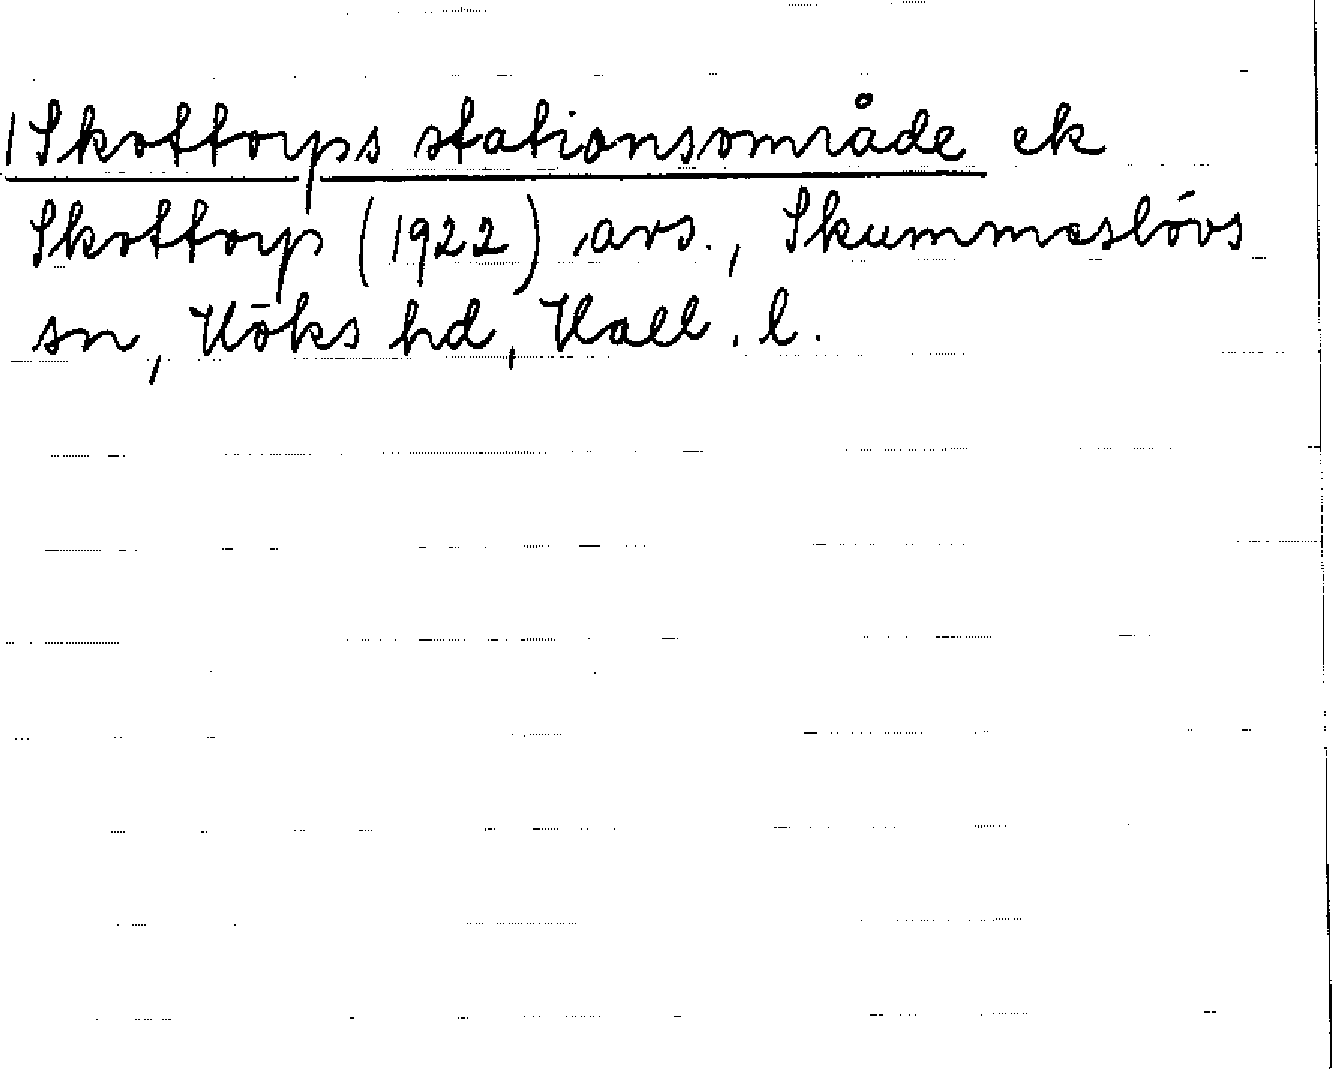 Skottorps stationsområde ek
Skottorp (1922) avs., Skummeslövs
sn, Höks hd, Hall. l.